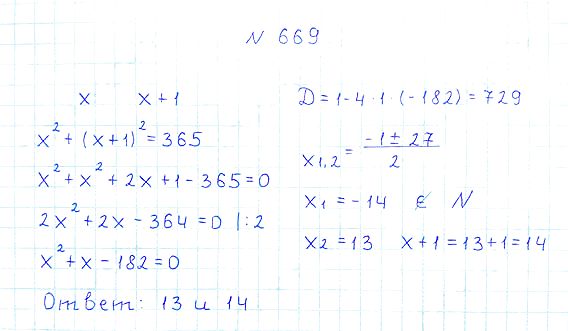 N 669
x x + 1
x² + (x + 1)² = 365
x² + x² + 2x + 1 - 365 = 0
2x² + 2x - 364 = 0 |:2
x² + x - 182 = 0
Ответ: 13 и 14
D = 1 - 4 · 1 · (-182) = 729
x1,2 = (-1 ± 27)/2
x1 = -14 ∉ N
x2 = 13 x + 1 = 13 + 1 = 14